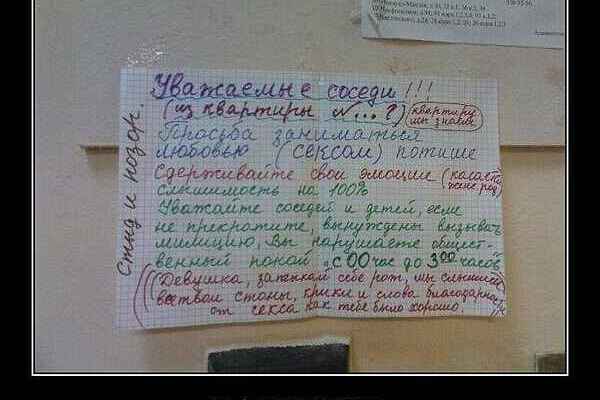 Уважаемые соседи!!!
(из квартиры №...?) (квартиру мы знаем)
Просьба заниматься
любовью (сексом) потише
Сдерживайте свои эмоции
слышимость на 100%
Уважайте соседей и детей, если
не прекратите, вынуждены вызывать
милицию, Вы нарушаете общест-
венный покой с 00 час до 3 00 часов
Девушка, затыкай себе рот, мы слышим
все твои стоны, крики и слова благодарности
от секса как тебе было хорошо.
Стыд и позор.